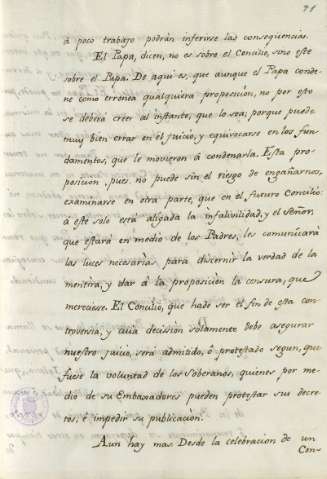 71
á poco trabajo podrán inferirse las conseqüencias.
El Papa, dicen, no es sobre el Concilio, sino este
sobre el Papa. De aqui es, que aunque el Papa conde-
ne como erronea qualquiera proposicion, no por esto
se deberá creer al instante, que lo sea; porque puede
muy bien errar en el juicio, y equivocarse en los fun-
damentos, que le movieron á condenarla. Esta pro-
posicion, pues, no puede sin el riesgo de engañarnos,
examinarse en otra parte, que en el futuro Concilio:
á este solo está aligada la infalivilidad, y el Señor,
que estará en medio de los Padres, les comunicará
las luces necesarias para discernir la verdad de la
mentira, y dar á la proposicion la censura, que
mereciese. El Concilio, que ha de ser el fin de esta con-
troversia, y cuia decision solamente debe asegurar
nuestro juicio, será admitido, ó protestado segun, que
fuese la voluntad de los Soberanos, quienes por me-
dio de su Embaxadores pueden protestar sus decre-
tos, é impedir su publicacion.
Aun hay mas. Desde la celebracion de un
Con-